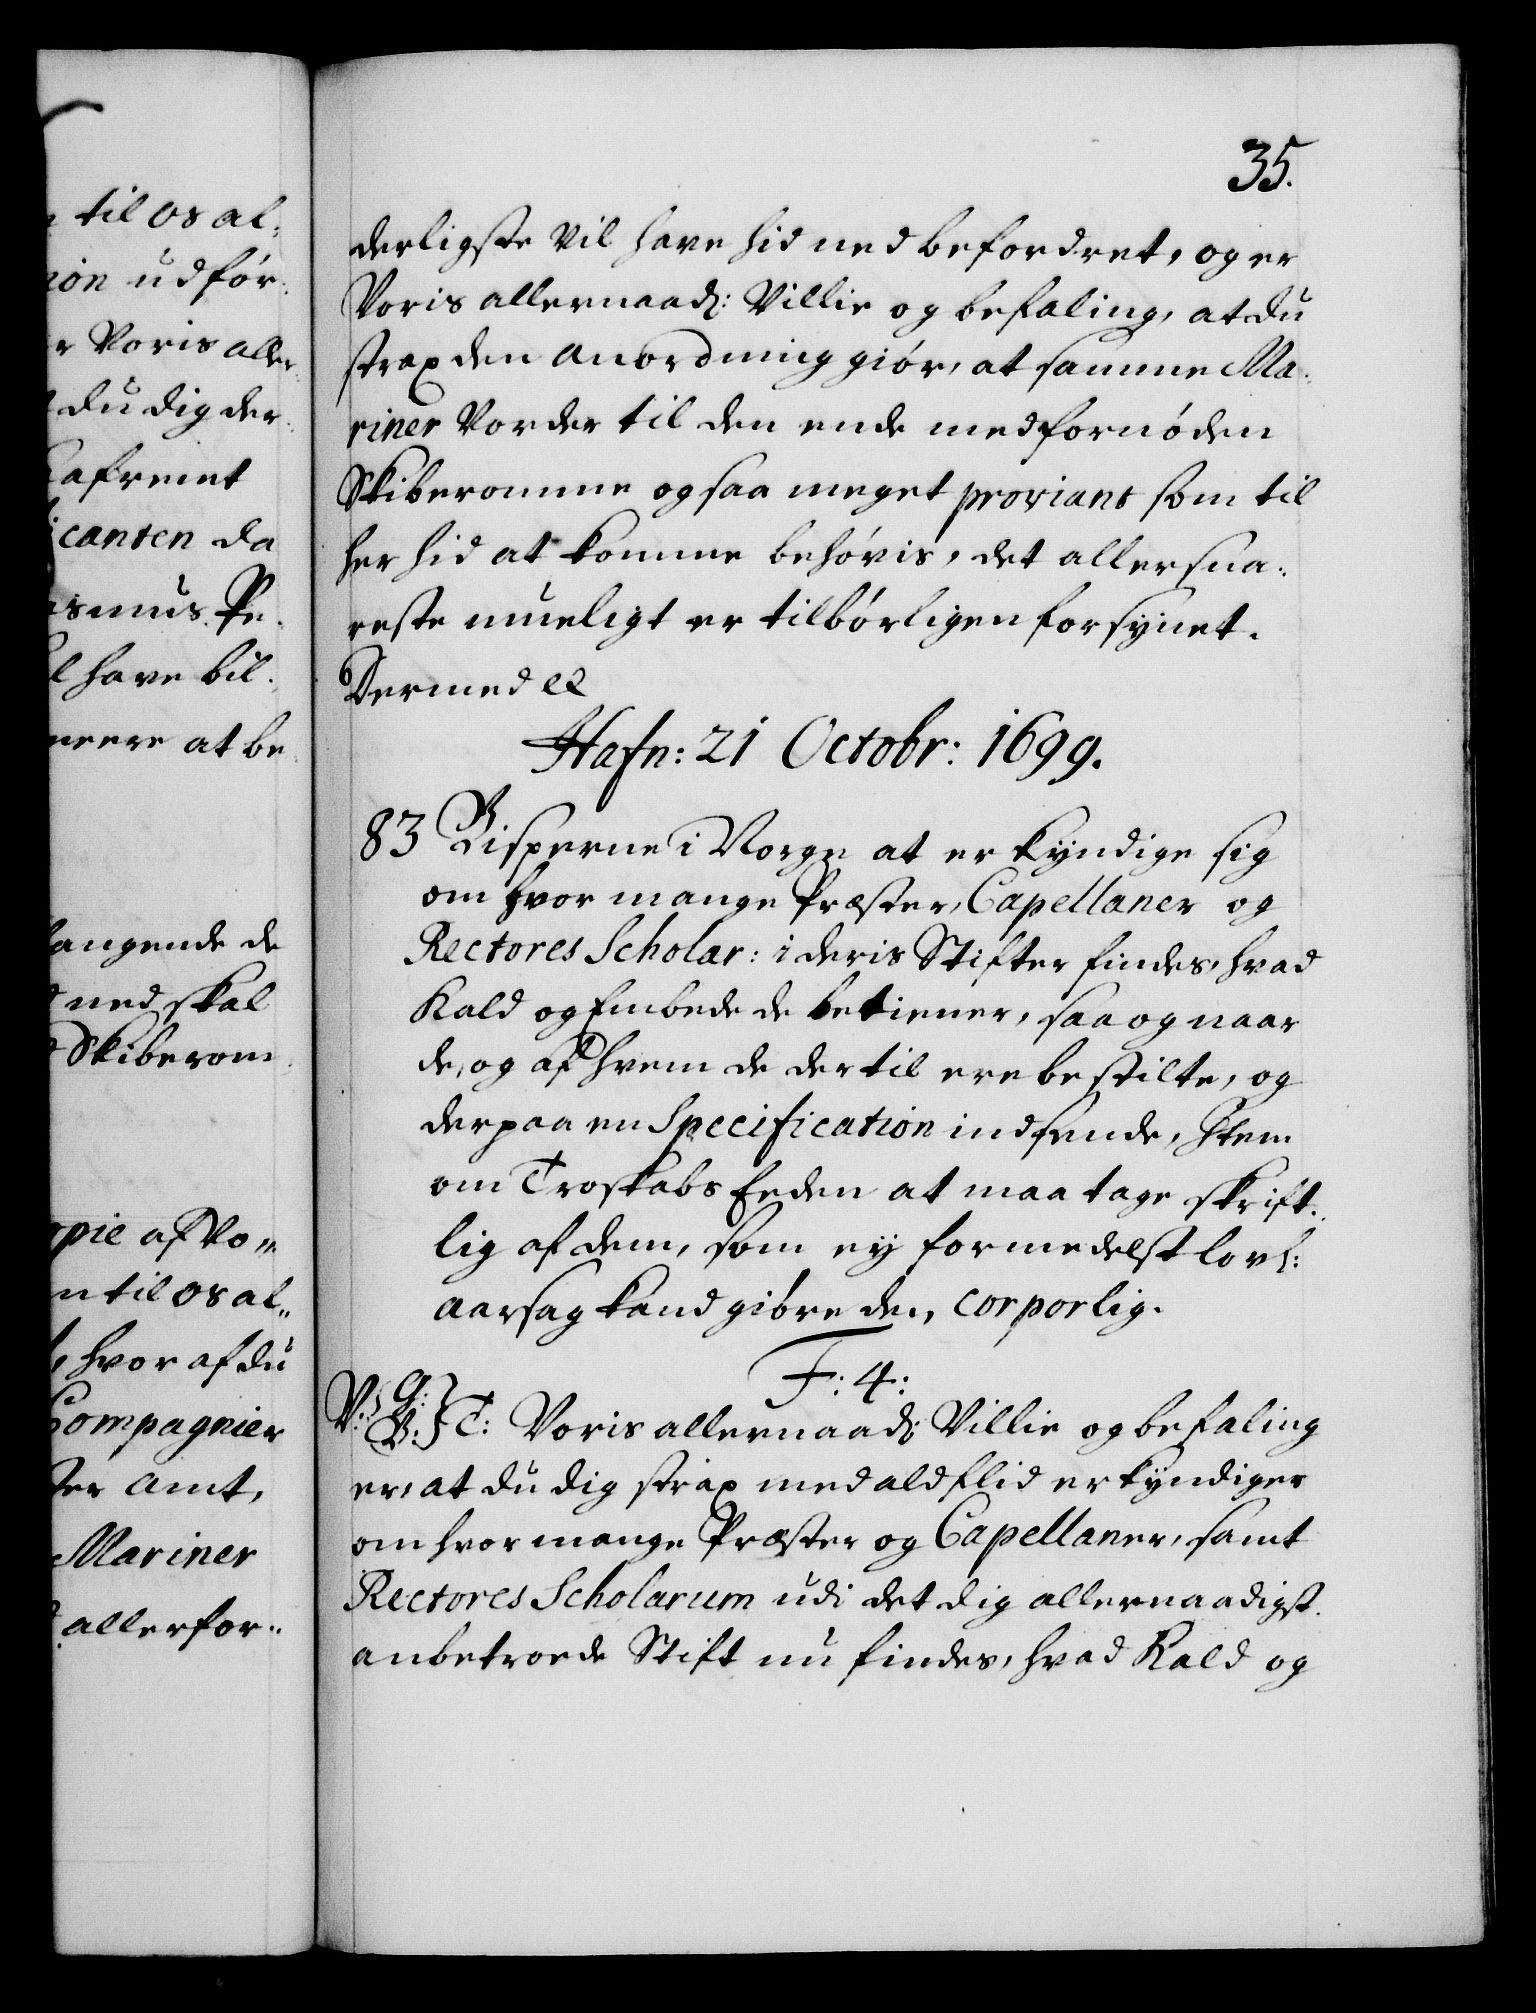 til os al¬
nion udfør¬
r Voris aller¬
du dig der¬
Kafremt
canten da
asmus Pe¬
l have bil¬
neere at be
langende de
ned skal
Skiberom
opie af Vo¬
n til os al¬
, hvor af du
Compagnier
ter Amt,
Mariner
allerfor¬
35.
derligste vil have hid ned befordret, og er
Voris allernaad: Villie og befaling, at du
strax den anordning giør, at samme Ma¬
riner Vorder til den ende med fornøden
Skiberomme og saa meget proviant som til
her hid at komme behøvis, det allersna¬
reste mueligt er tilbørligen forsynet.
Dermed etc
Hafn: 21 Octobr: 1699.
83 Bisperne i Norge at erkyndige sig
om hvor mange Præster, Capellaner og
Rectores Scholar: i deris Stifter findes, hvad
Kald og Embede de betiener, saa og naar
de, og af hvem de dertil ere bestilte, og
derpaa en Specification indsende, Item
om Troskabs Eeden at maa tage skrift¬
lig af dem, som ey formedelst lovl:
aarsag kand giøre den, corporlig.
F: 4:
V: G: B: T: Voris allernaad: Villie og befaling
er, at du dig strax med ald flid erkyndiger
om hvor mange Præster og Capellaner, samt
Rectores Scholarum udi det dig allernaadigst
anbetroede Stift nu findes, hvad Kald og